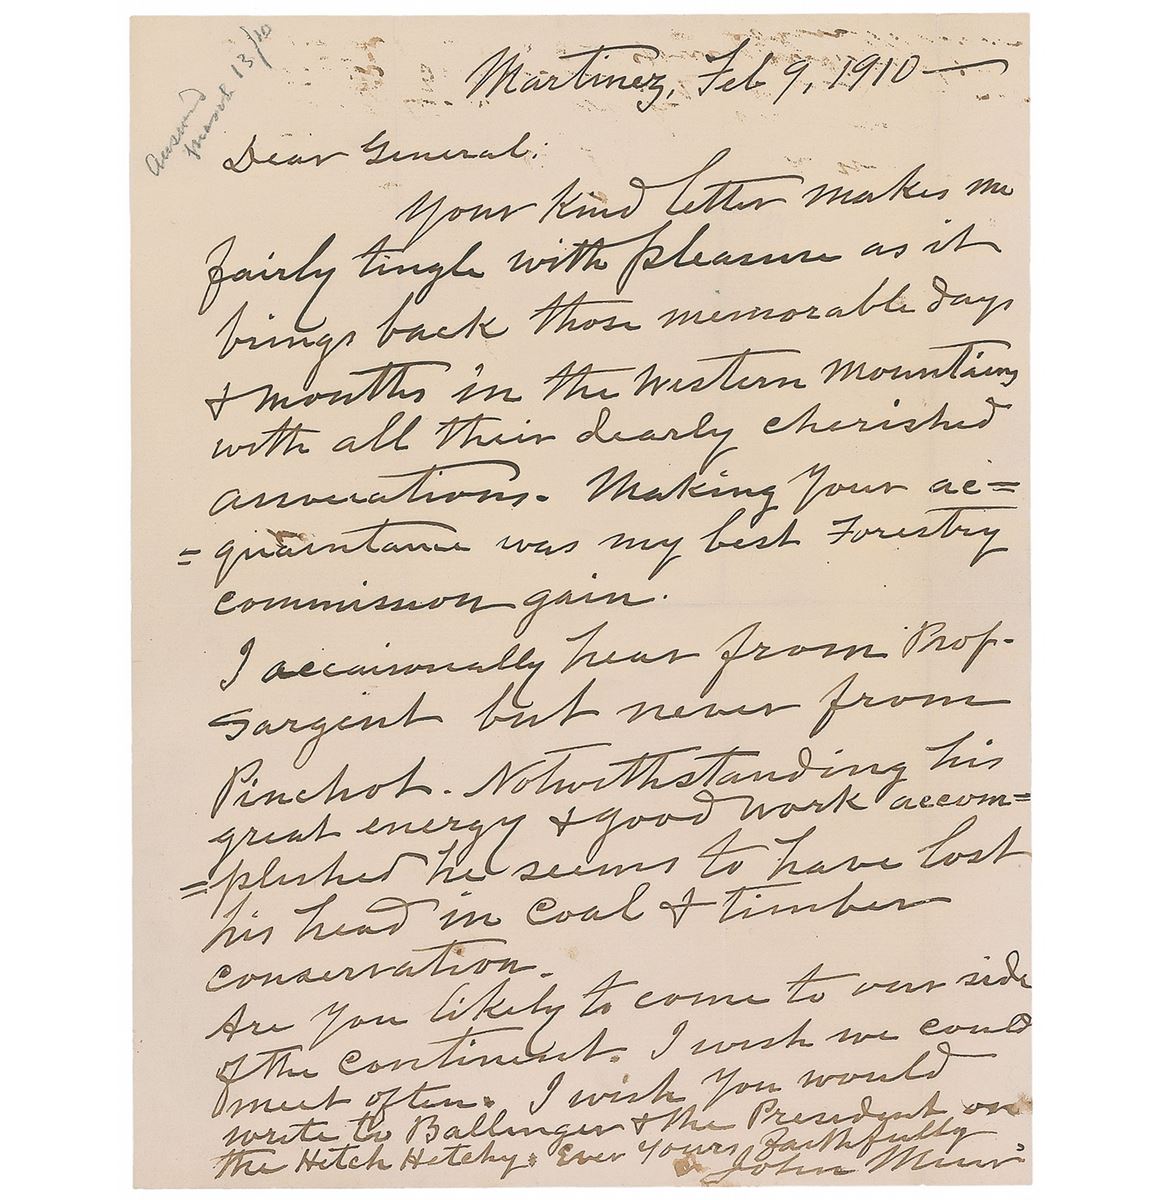 Answd
March 13/10
Martinez, Feb 9, 1910 —
Dear General:
Your kind letter makes me
fairly tingle with pleasure as it
brings back those memorable days
& months in the Western Mountains
with all their dearly cherished
associations. Making your ac=
=quaintance was my best Forestry
commission gain.
I occaisonally hear from Prof.
Sargent but never from
Pinchot. Notwithstanding his
great energy & good work accom=
=plished he seems to have lost
his head in coal & timber
conservation.
Are you likely to come to our side
of the continent. I wish we could
meet often. I wish you would
write to Ballinger & the President on
the Hetch Hetchy. Ever Yours faithfully
John Muir